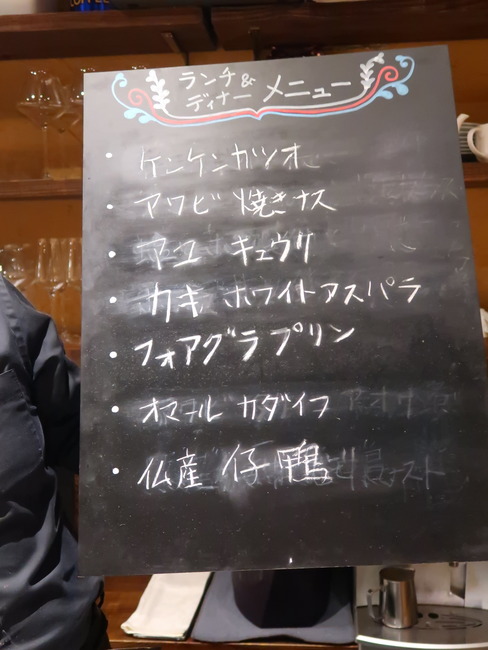 ランチ&
ディナー メニュー
・ケンケンガツオ
・アワビ 焼きナス
・アユ キュウリ
・カキ ホワイトアスパラ
・フォアグラプリン
・オマール カダイフ
・仏産 仔鴨